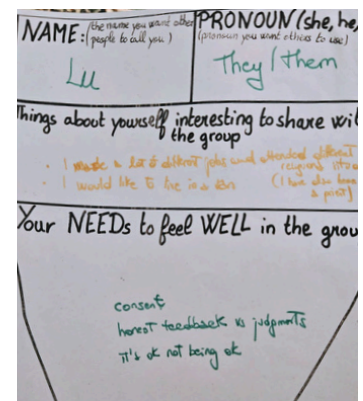 NAME: (the name you want other people to call you)
Lu
PRONOUN (she, he,
(pronoun you want others to use)
They / them
Things about yourself interesting to share wit
the group
• I made a lot of different jobs and attended different
• I would like to live in a (I have also been
Your NEEDs to feel WELL in the grou
consent
honest feedback vs judgments
it's ok not being ok